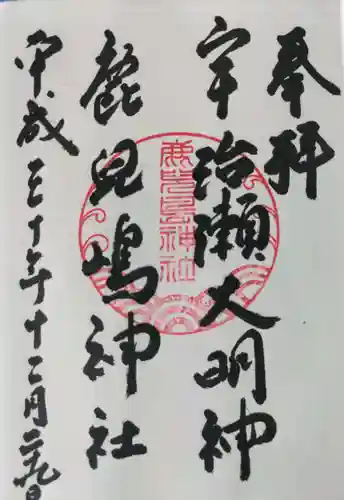 奉拝
宇治瀬大明神
鹿兒嶋神社
鹿兒島神社
平成三十年十二月二九日